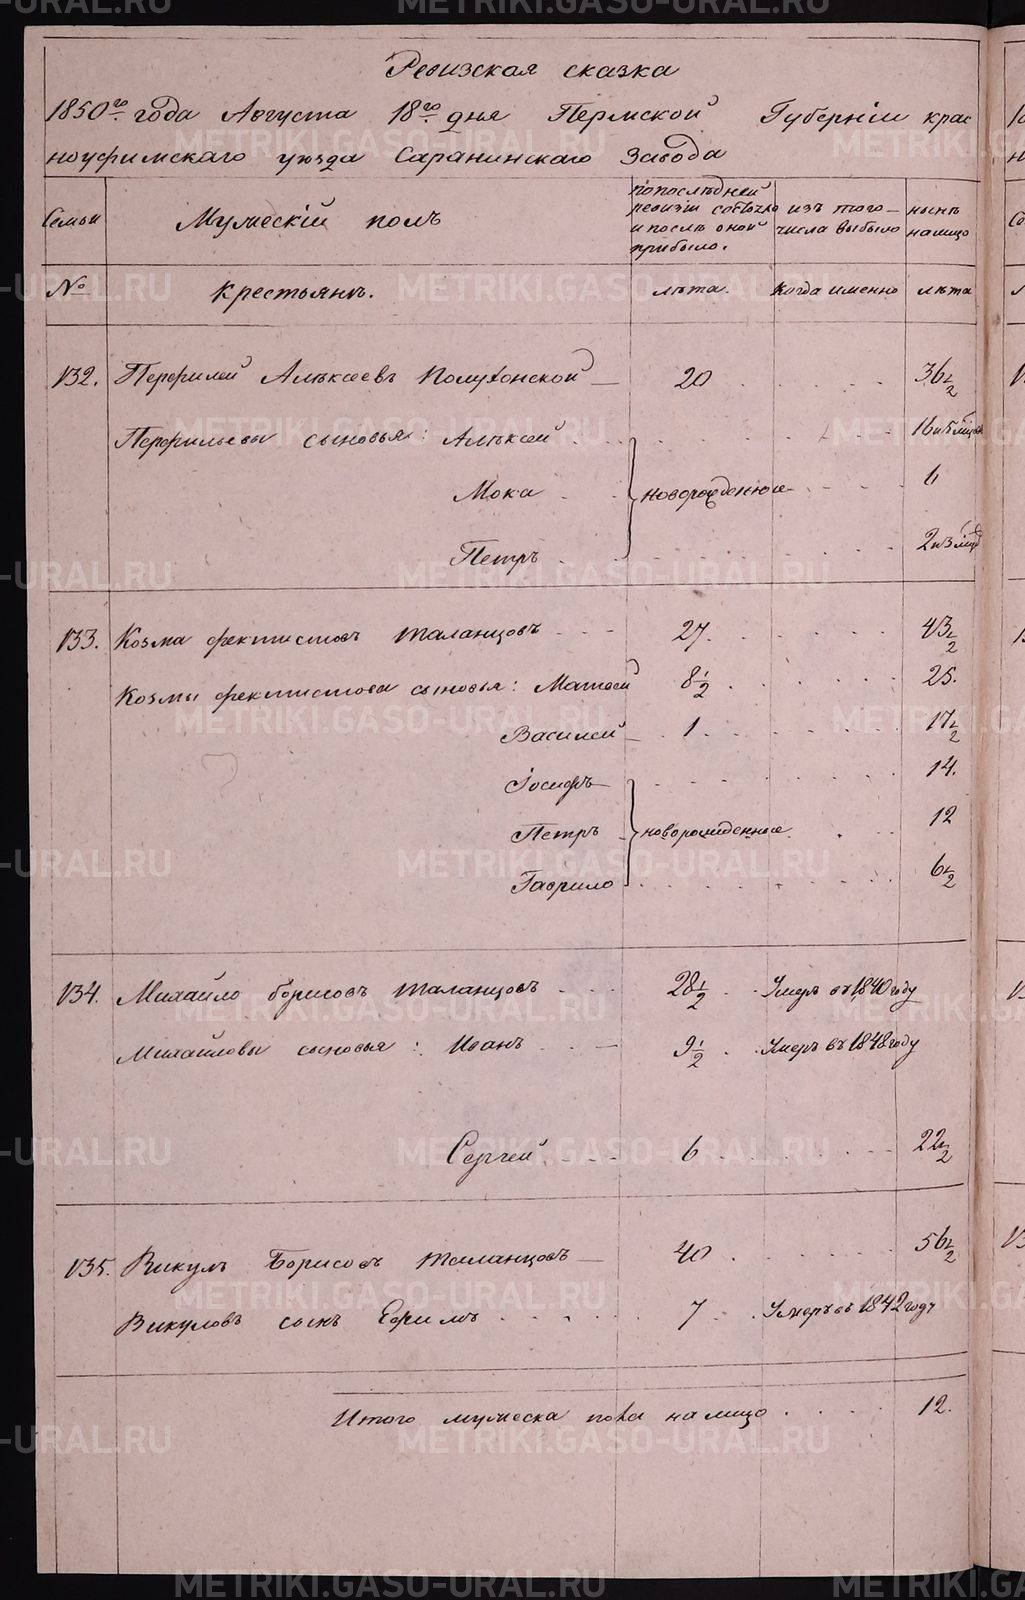 Ревизская сказка
1850го года Августа 18го дня Пермской Губерніи крас
ноуфимскаго уезда Саранинскаго Завода
Семьи
Мужескій полъ
попоследней ревизіи состояло и после оной прибыло.
изъ того числа выбыло
ныне налицо
№
крестьяне.
лета.
Когда именно
лета
132. Перфилей Алексеевъ Полухонской 20 36 1/2
Перфильевы сыновья: Алексей 16 и 5 месяц
Мока новорожденные 6
Петръ 2 и 3 мец
133. Козма фектистовъ Таланцовъ 27. 43 1/2
Козмы фектистова сыновья: Матвей 8 1/2 25.
Василей 1 17 1/2
Iосифъ 14.
Петръ новорожденные 12
Гаврило 6 1/2
134. Михайло борисовъ Таланцовъ 28 1/2 Умеръ въ 1840 году
Михайловы сыновья: Иванъ 9 1/2 Умеръ въ 1848 году
Сергей 6 22 1/2
135. Викулъ Борисовъ Таланцовъ 40 56 1/2
Викуловъ сынъ Ефимъ 7 Умеръ въ 1842 году
Итого мужеска пола налицо 12.
METRIKI.GASO-URAL.RU